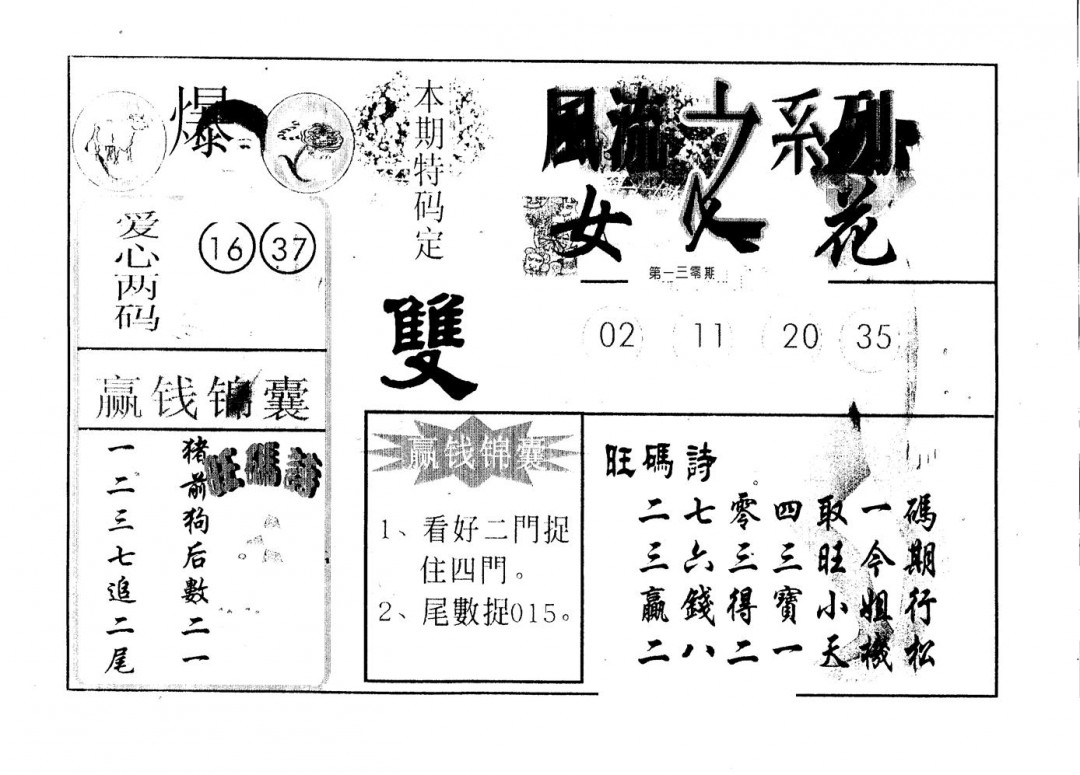 爆
本期特码定
雙
爱心两码
16 37
赢钱锦囊
旺碼詩
猪前狗后數二一
一二三七追二尾
風流之系列
女人花
第一三零期
02 11 20 35
赢钱锦囊
1、看好二門捉
住四門。
2、尾數捉015。
旺碼詩
二七零四取一碼
三六三三旺今期
贏錢得寶小姐行
二八二一天機松